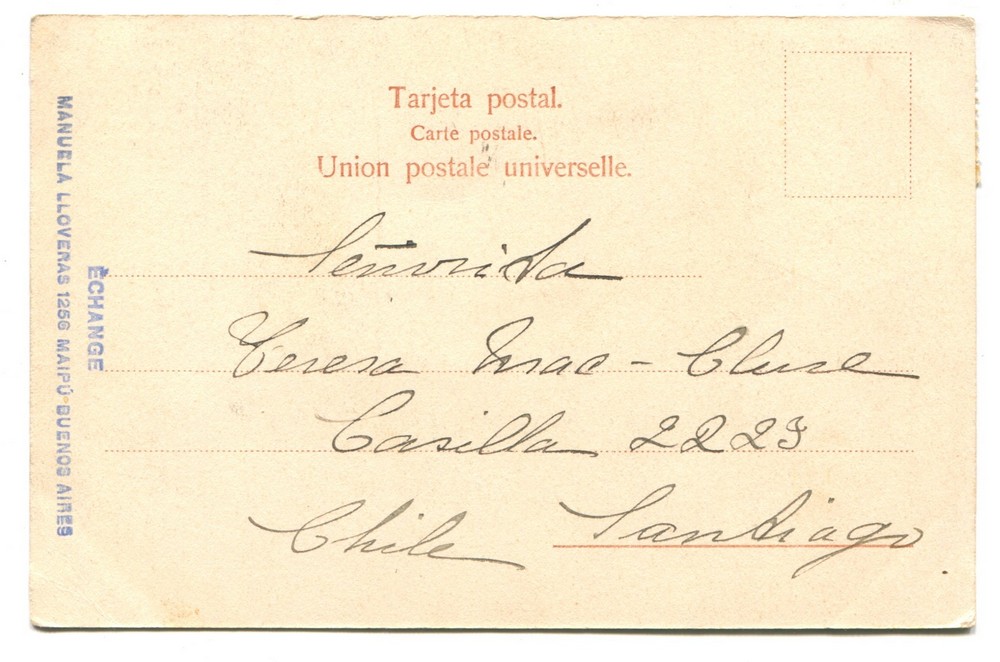 Tarjeta postal.
Carte postale.
Union postale universelle.
Señorita
Teresa Mac-Clure
Casilla 2223
Chile Santiago
ÉCHANGE
MANUELA LLOVERAS 1256 MAIPÚ-BUENOS AIRES